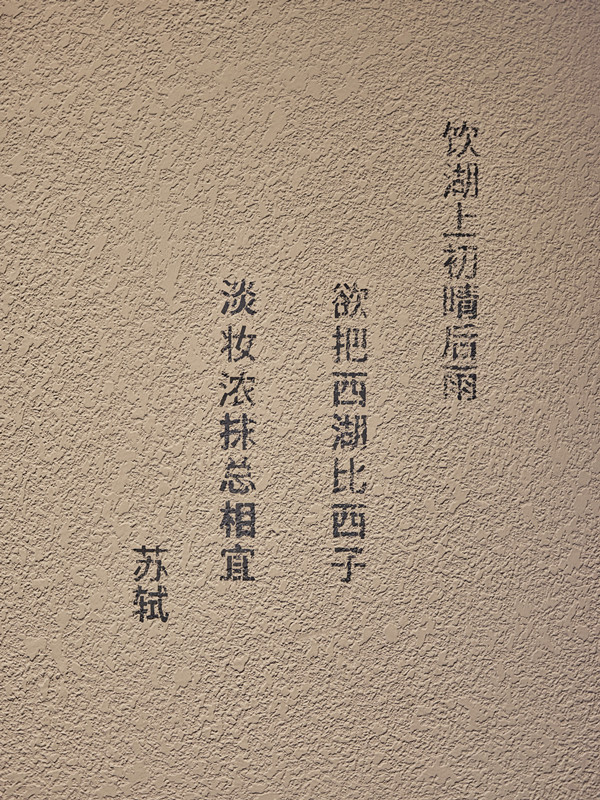 饮湖上初晴后雨
欲把西湖比西子
淡妆浓抹总相宜
苏轼